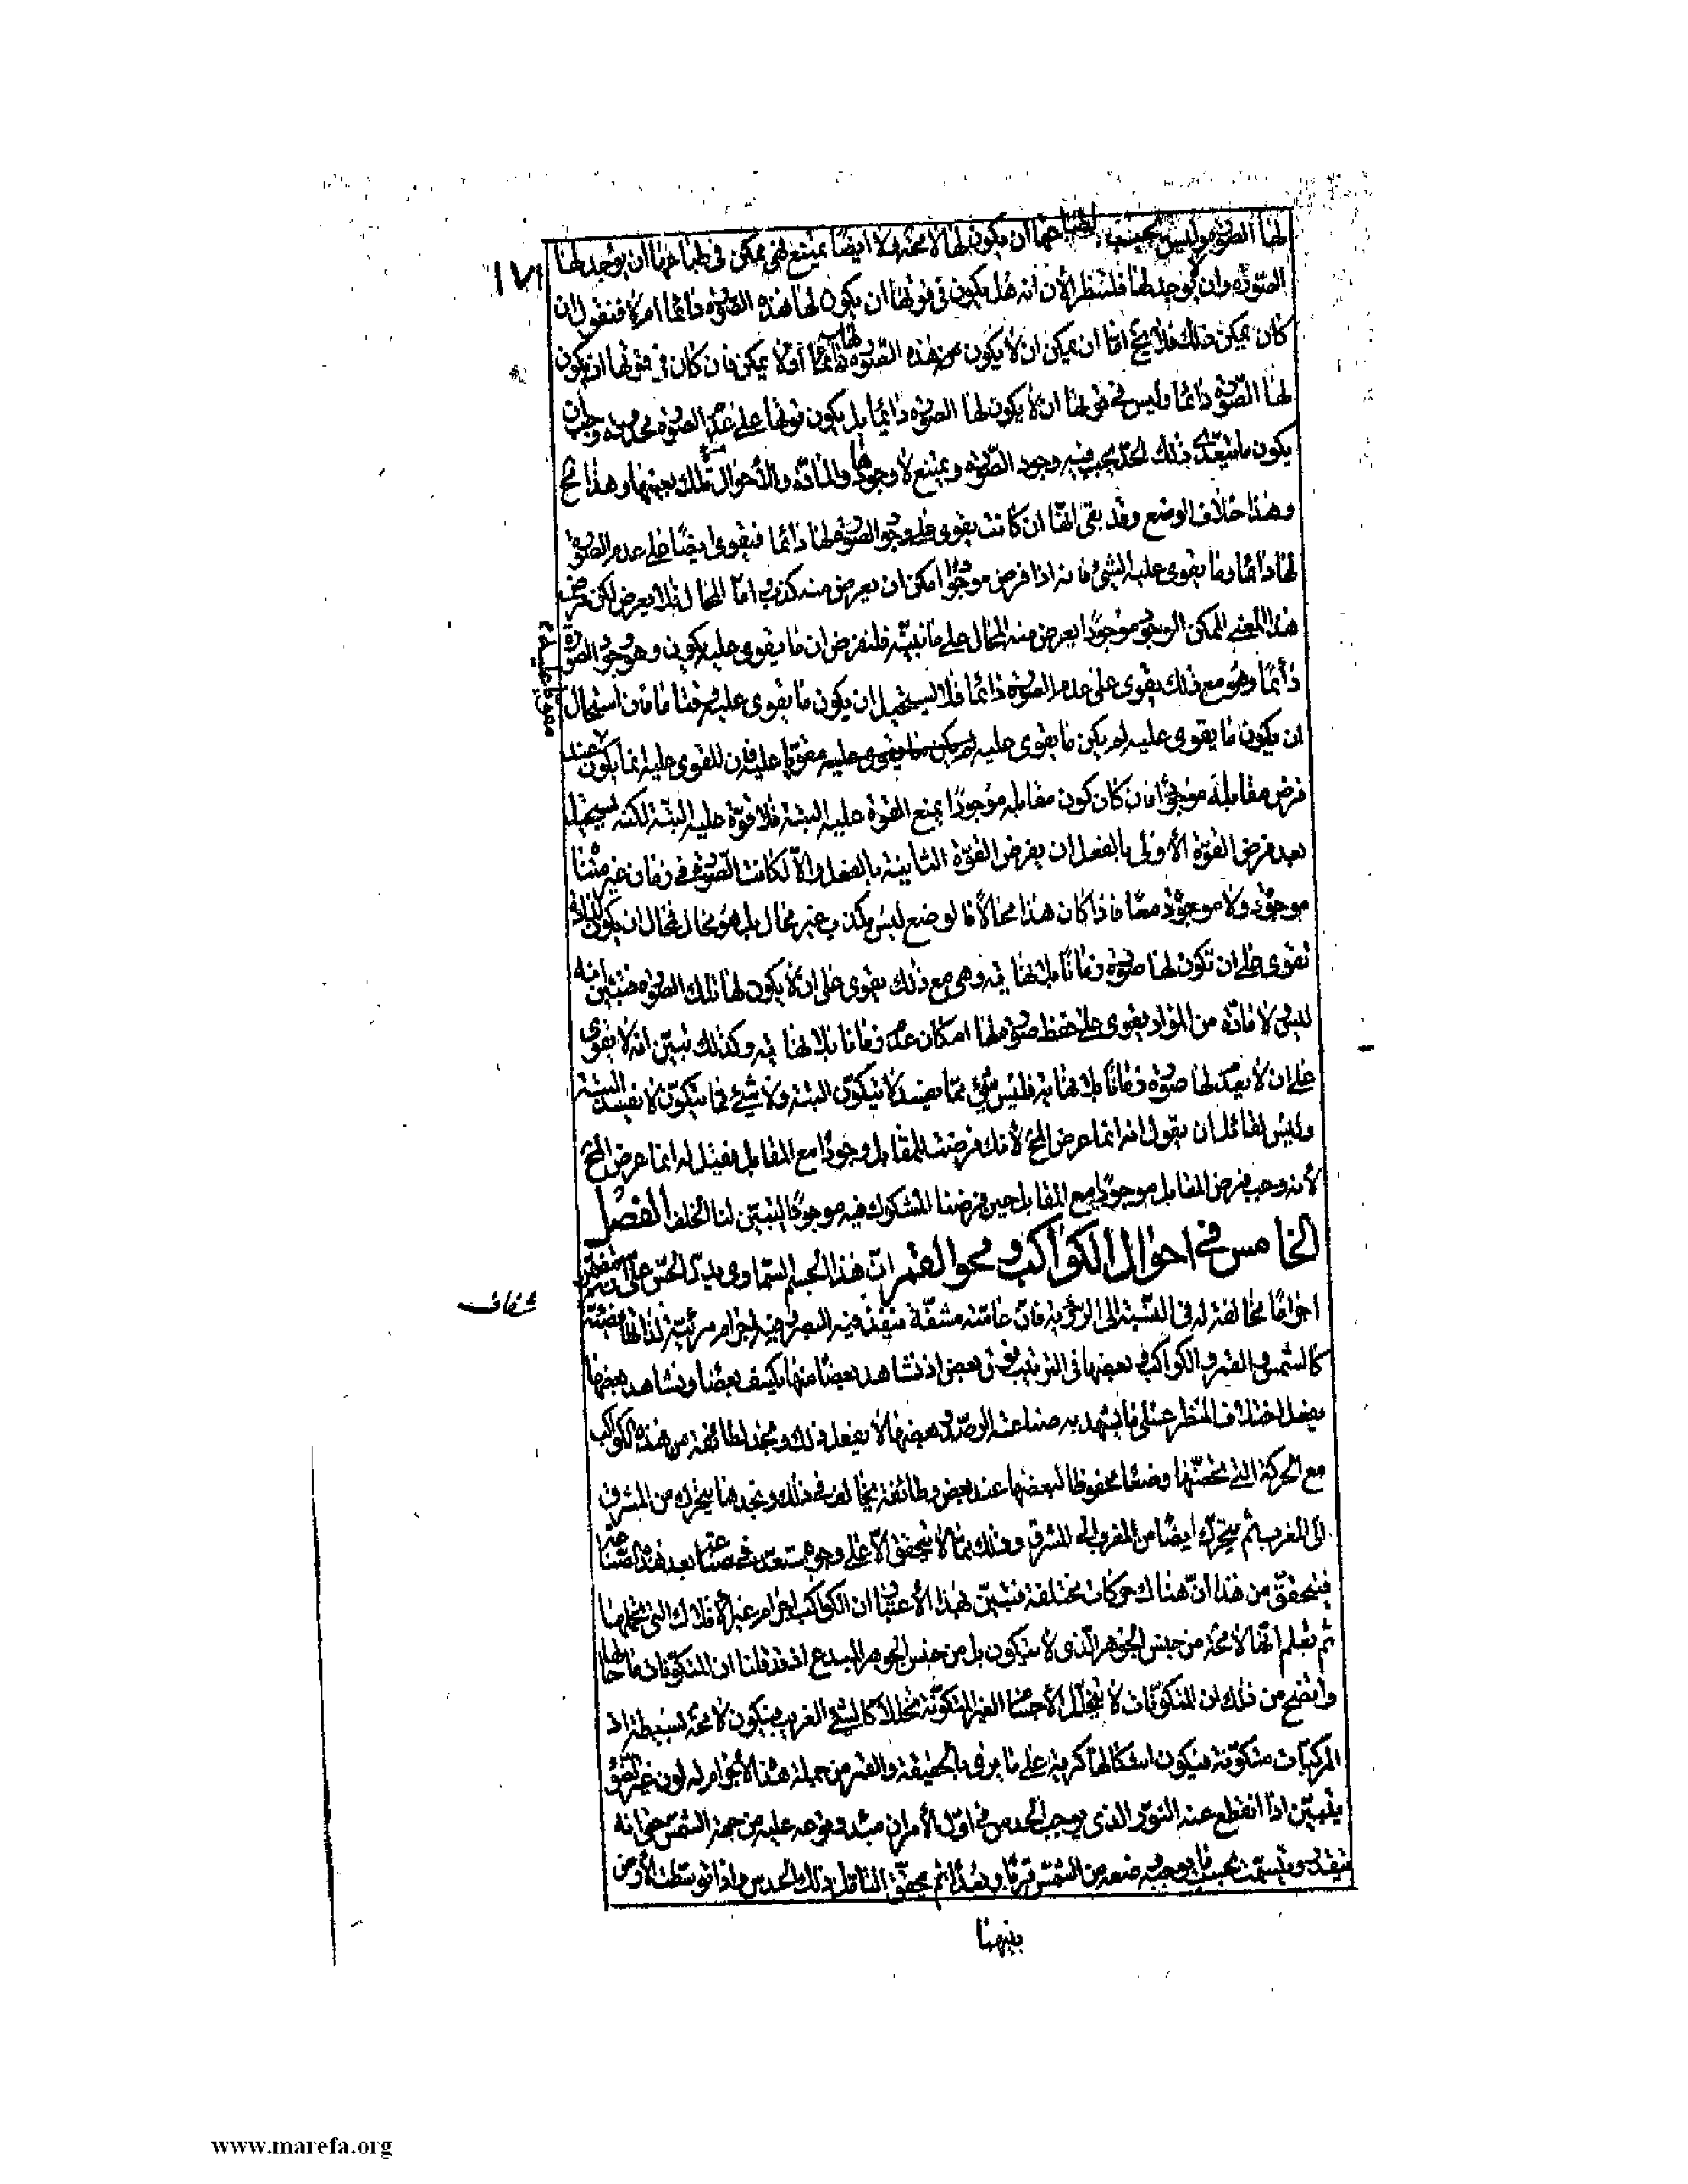 ١٧١
لها الصورة وليس بحيث لطباعها ان يكون لها لا محة ولا ايضا بممتنع فهى ممكن فى طباعها ان يوجد لها
الصورة وان لا يوجد لها فلننظر الآن انه هل يكون فى قوتها ان يكون لها هذه الصورة دائما ام لا فنقول ان
كان يمكن ذلك فلا يخ اما ان يمكن ان لا يكون هذه الصورة لها دائما او لا يمكن فان كان فى قوتها ان يكون
لها الصورة دائما وليس فى قوتها ان لا يكون لها الصورة دائما بل يكون قوتها على عدم الصورة محدودة وجب ان
يكون ما يتعدى ذلك الحد يجب فيه وجود الصورة ويمتنع لا وجودها والمادة والاحوال تلك بعينها وهذا مح
وهذا خلاف الوضع وقد بقى انها ان كانت يقوى على وجود الصورة لها دائما فيقوى ايضا على عدم الصورة
لها دائما وما يقوى عليه الشئ فانه اذا فرض موجودا امكن ان يعرض منه كذب اما المحال فلا يعرض لكن فرض
هذا المعنى الممكن الوجود موجودا يعرض منه المحال على ما نبينه فلنفرض ان ما يقوى عليه يكون وهو وجود الصورة
دائما وهو مع ذلك يقوى على عدم الصورة دائما فلا يستحيل ان يكون ما يقوى عليه فان استحال
ان يكون ما يقوى عليه لم يكن ما يقوى عليه مقويا عليه فان المقوى عليه انما يكون عند
فرض مقابله موجودا فان كان كون مقابله موجودا يمنع القوة عليه البتة فلا قوة عليه البتة لكنه يستحيل
بعد فرض القوة الأولى بالفعل ان يفرض القوة الثانية بالفعل والا لكانت الصورة فى زمان غير متناه
موجودة ولا موجودة معا فاذا كان هذا محالا فالوضع ليس بكذب غير محال بل هو محال فمحال ان يكون المادة
تقوى على ان تكون لها صورة زمانا بلا نهاية وهى مع ذلك يقوى على ان لا يكون لها تلك الصورة فتبين انه
ليس لا مادة من المواد يقوى على حفظ صورة لها امكان عدم زمانا بلا نهاية وكذلك تبين انه لا يقوى
على ان لا يعدم لها صورة زمانا بلا نهاية فليس شئ مما يفسد لا يتكون البتة ولا شئ مما يتكون لا يفسد البتة
وليس لقائل ان يقول انه انما عرض المح لأنك فرضت للمقابل وجودا مع المقابل فيقال له انما عرض المح
لأنه وجب فرض المقابل موجودا مع المقابل حين فرضنا المشكوك فيه موجودا ليتبين لنا الخلف الفصل
الخامس فى احوال الكواكب ومحو القمر ان هذا الجسم السماوى يدل الحس على انه يتضمن
اجراما مخالفة له فى النسبة الى الرؤية فان عامته مشفة ينفذ فيه البصر وفيه اجرام مرئية لذاتها مضيئة
كالشمس والقمر والكواكب وبعضها فى الترتيب فوق بعض اذ نشاهد بعضا منها يكسف بعضا ونشاهد بعضها
يفعل اختلاف المنظر على ما يشهد به صناعة الرصد وبعضها لا يفعل ذلك ونجد لطائفة من هذه الكواكب
مع الحركة التى تخصها وضعا محفوظا لبعضها عند بعض وطائفة يخالف فى ذلك ونجدها يتحرك من المشرق
الى المغرب ثم يتحرك ايضا من المغرب الى المشرق وذلك مما لا يتحقق الا على وجوه ستعد فى صناعة بعد هذه الصناعة
فيتحقق من هذا ان هناك حركات مختلفة فتبين بهذا الاعتبار ان الكواكب اجرام غير الافلاك التى تحملها
ثم نعلم انها لا محة من جنس الجوهر الذى لا يتكون بل من جنس الجوهر المبدع اذ قد قلنا ان المتكونات ما حالها
واتضح من ذلك ان المتكونات لا يتخلل الأجسام الغير المتكونة تخللا كالشئ الغريب فيكون لا محة بسيطة اذ
المركبات متكونة فيكون اشكالها كرية على ما يرى بالحقيقة والقمر من جملة هذه الأجرام له لون غير الضوء
يتبين اذا انقطع عنه النور الذى يوجب الحدس فى اول الأمر ان مبدء وقوعه عليه من جهة الشمس حتى انه
يتقدر ويتسمت بحسب ما يوجبه وضعه من الشمس قربا وبعدا ثم يحقق التامل ذلك الحدس واذا توسطت الأرض
بينهما
مقويا عليه
شفاف
www.marefa.org